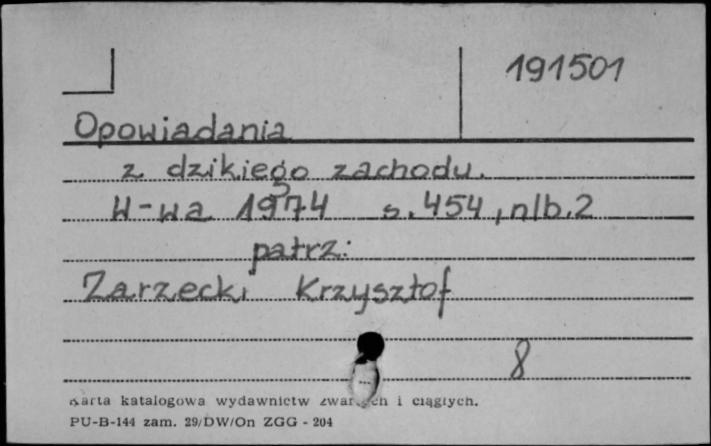 191501
Opowiadania
z dzikiego zachodu.
W-wa 1974 s. 454, nlb. 2
patrz:
Zarzecki Krzysztof
8
Karta katalogowa wydawnictw zwartych i ciągłych.
PU-B-144 zam. 29/DW/On ZGG - 204